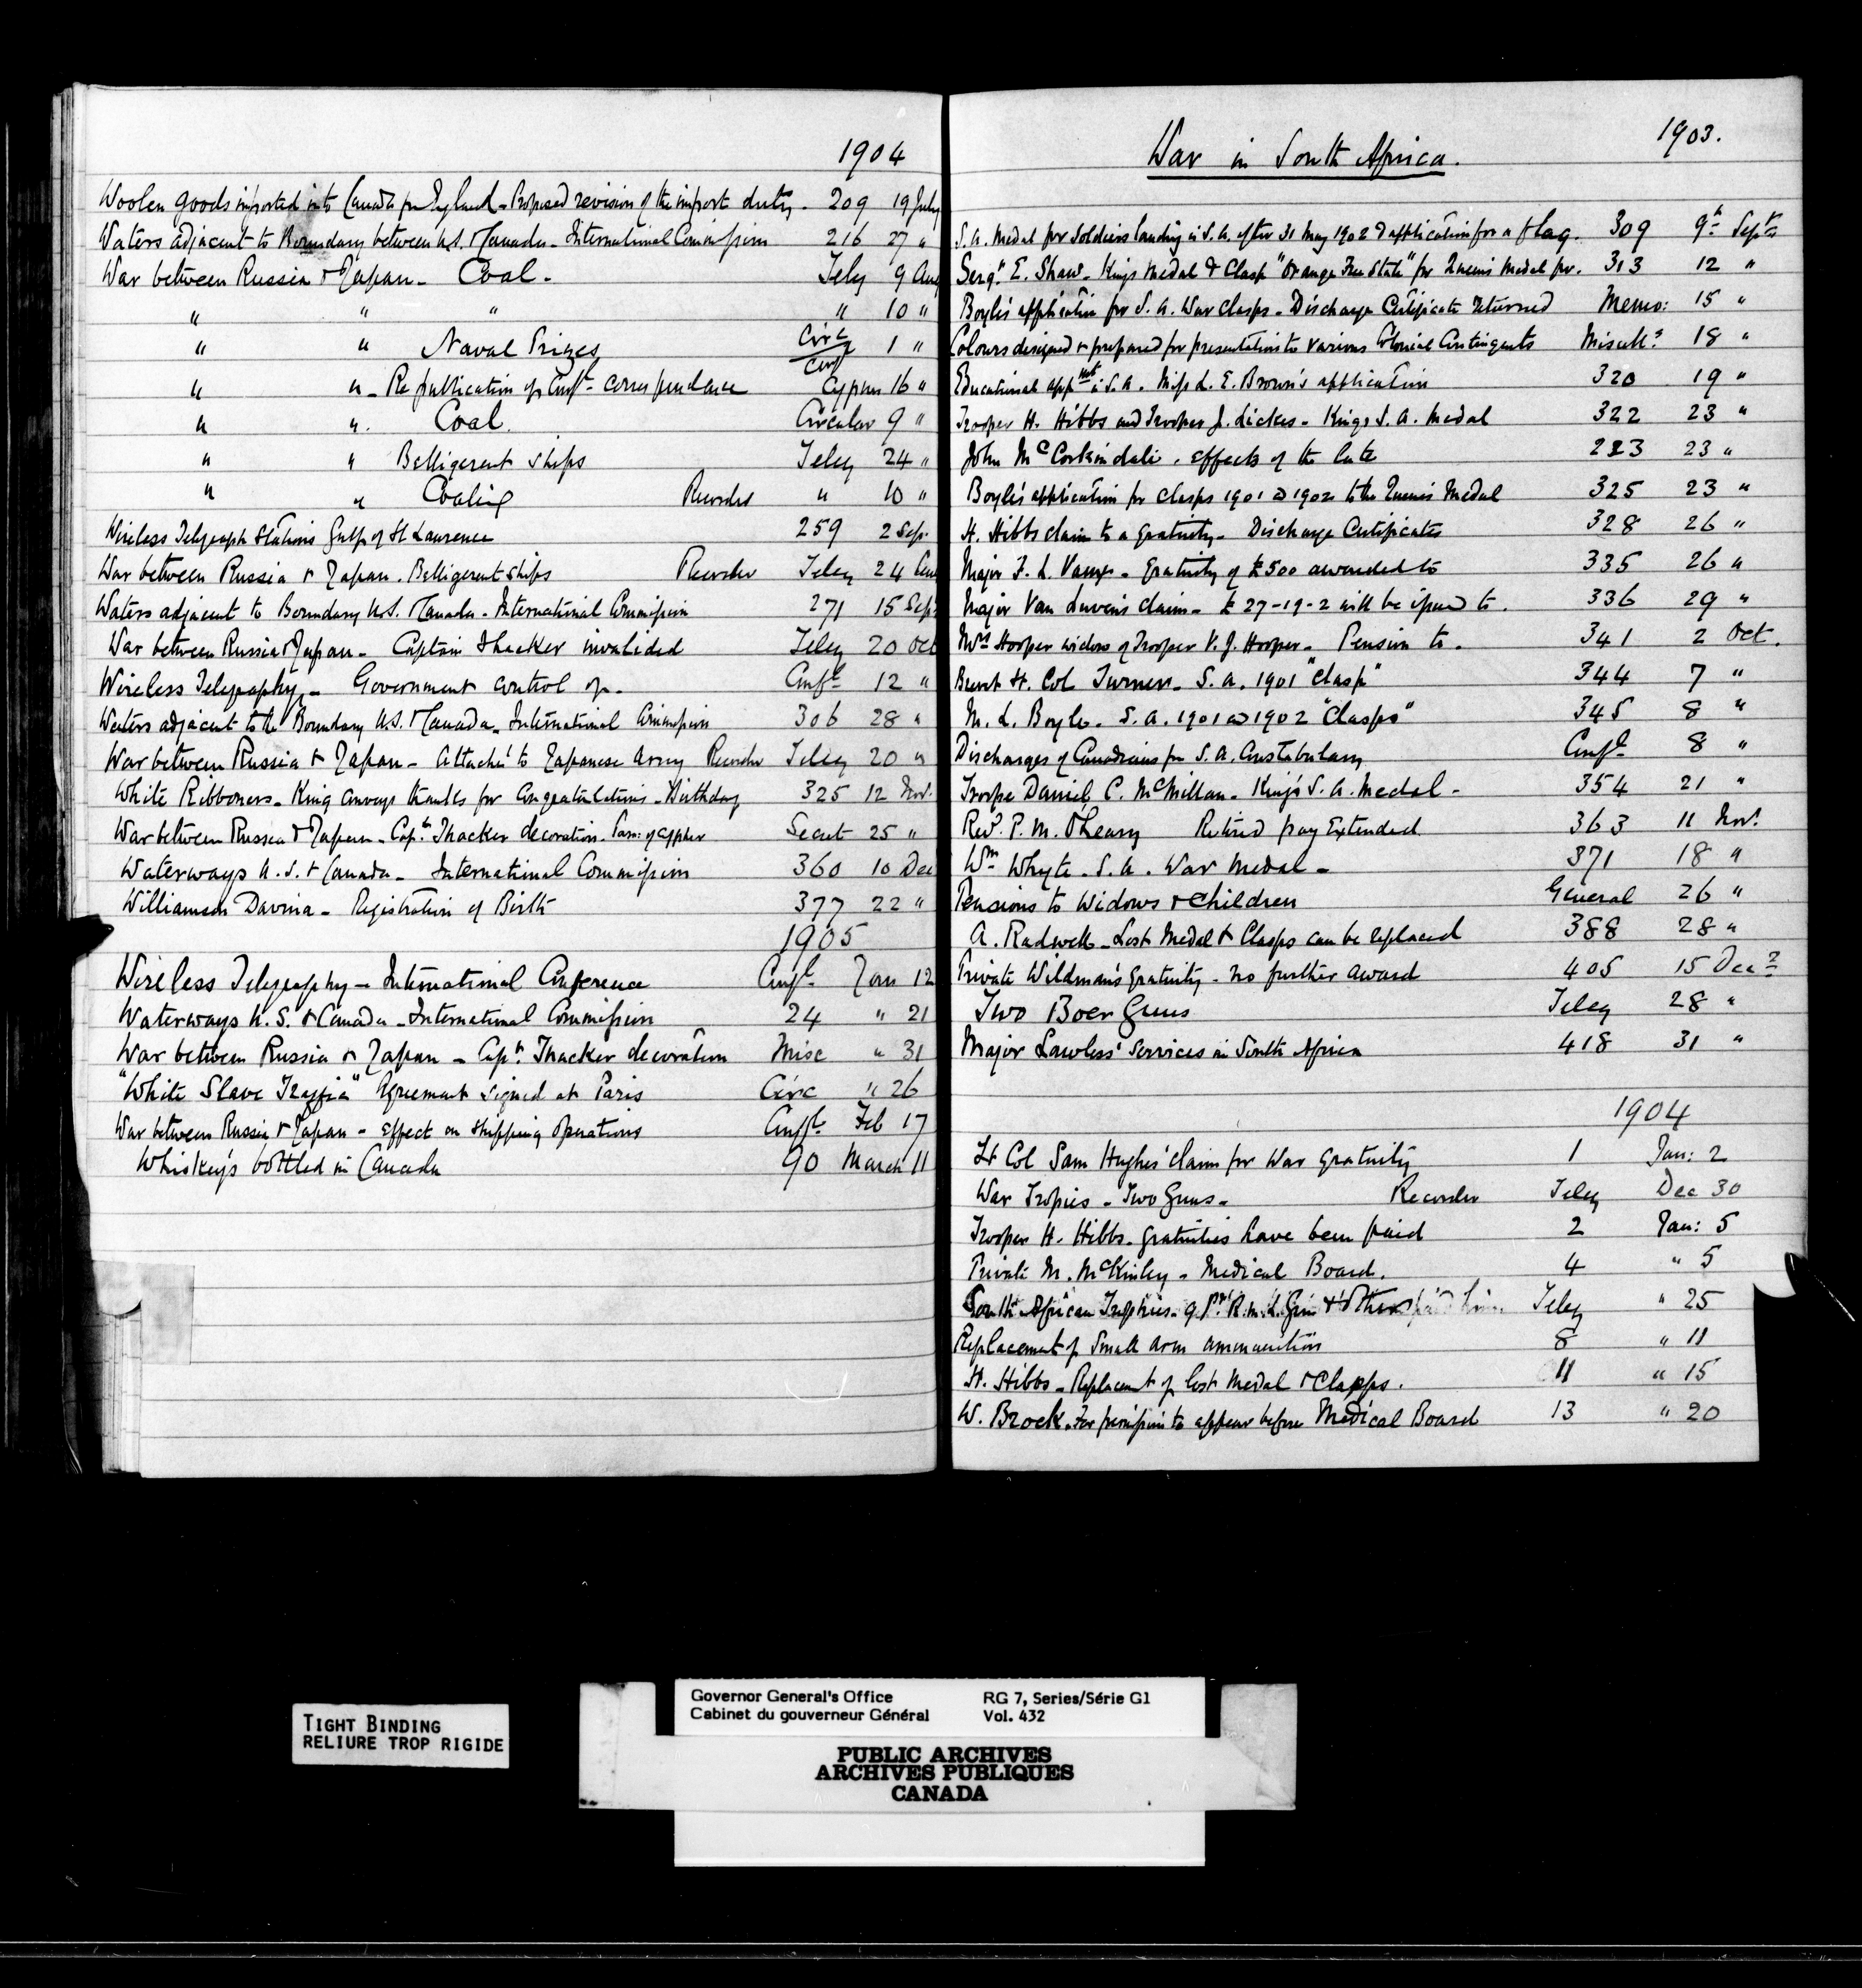 1904
Woolen goods imported into Canada fm England - Proposed revision of the import duty - 209 19 July
Waters adjacent to Boundary between U.S. & Canada - International Commission 216 27 "
War between Russia & Japan - Coal - Teleg 9 Aug
" " " " 10 "
" " Naval Prizes Circ Conf 1 "
" " - Re publication of Confl correspondence Cyprus 16 "
" " Coal. Circular 9 "
" " Belligerent ships Teleg 24 "
" " Coaling Recorder " 10 "
Wireless Telegraph Stations Gulf of St Lawrence 259 2 Sep.
War between Russia & Japan. Belligerent ships Recorder Teleg 24 Aug
Waters adjacent to Boundary U.S. & Canada - International Commission 271 15 Sep
War between Russia & Japan - Captain Thacker invalided Teleg 20 Oct
Wireless Telegraphy - Government control of - Confl 12 "
Waters adjacent to the Boundary U.S. & Canada - International Commission 306 28 "
War between Russia & Japan - Attaché to Japanese Army Recorder Teleg 20 "
White Ribboners - King conveys thanks for Congratulations - Birthday 325 12 Nov.
War between Russia & Japan - Capt. Thacker decoration. of cypher Secret 25 "
Waterways U.S. & Canada - International Commission 360 10 Dec
Williamson Davina - Registration of Birth 377 22 "
1905
Wireless Telegraphy - International Conference Confl Jan 12
Waterways U.S. & Canada - International Commission 24 " 21
War between Russia & Japan - Capt. Thacker decoration Misc " 31
"White Slave Traffic" Agreement signed at Paris Circ " 26
War between Russia & Japan - effect on shipping operations Confl Feb 17
Whiskeys bottled in Canada 90 March 11
War in South Africa. 1903.
S.A. Medal for Soldiers landing in S.A. after 31 May 1902 & application for a flag. 309 9th Septr
Sergt. E. Shaw - Kings Medal & Clasp "Orange Free State" for Queen's Medal for. 313 12 "
Boyle's application for S.A. War Clasps - Discharge Certificate returned Memo: 15 "
Colours designed & prepared for presentation to various Colonial Contingents Miscells 18 "
Educational appmt in S.A. Miss L.E. Brown's application 320 19 "
Trooper H. Hibbs and Trooper J. Lickes - Kings S.A. Medal 322 23 "
John McCorkindale. effects of the late 223 23 "
Boyle's application for clasps 1901 & 1902 to the Queen's Medal 325 23 "
H. Hibbs claim to a gratuity - Discharge Certificates 328 26 "
Major F.L. - Gratuity of £500 awarded to 335 26 "
Major Van Luven's claim - £27-19-2 will be issued to. 336 29 "
Mrs Hooper widow of Trooper V.J. Hooper - Pension to. 341 2 Oct.
Brevet Lt. Col Turner - S.A. 1901 "Clasp" 344 7 "
M.L. Boyle - S.A. 1901 & 1902 "Clasps" 345 8 "
Discharges of Canadians fm S.A. Constabulary Confl 8 "
Trooper Daniel C. McMillan - King's S.A. Medal - 354 21 "
Revd. P.M. O'Leary Retired pay Extended 363 11 Nov.
Wm Whyte - S.A. War Medal - 371 18 "
Pensions to Widows & Children General 26 "
A. Radwell - Lost Medal & Clasps can be replaced 388 28 "
Private Wildman's gratuity - no further award 405 15 Decr
Two Boer Guns Teleg 28 "
Major Lawless' services in South Africa 418 31 "
1904
Lt Col Sam Hughes' claim for War gratuity 1 Jan: 2
War Tropies - Two Guns - Recorder Teleg Dec 30
Trooper H. Hibbs - gratuities have been paid 2 Jan: 5
Private M. McKinley - Medical Board. 4 " 5
South African Trophies - 9 Pr. R.M.L. Gun & Teleg " 25
Replacement of Small arm ammunition 8 " 11
H. Hibbs - Replacemt of lost Medal & Clasps. 11 " 15
W. Brock - For permission to appear before Medical Board 13 " 20
TIGHT BINDING
RELIURE TROP RIGIDE
Governor General's Office RG 7, Series/Série G1
Cabinet du gouverneur Général Vol. 432
PUBLIC ARCHIVES
ARCHIVES PUBLIQUES
CANADA